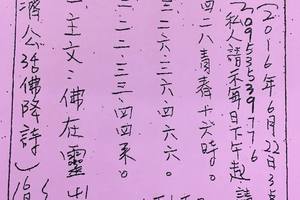 (2016年6月22日3
0953539776
(私人請示每日下午起請
四二八青春十六時。
三二六三六四六六。
三一二二三三四四來。
主文:佛在靈山
濟公活佛降詩)